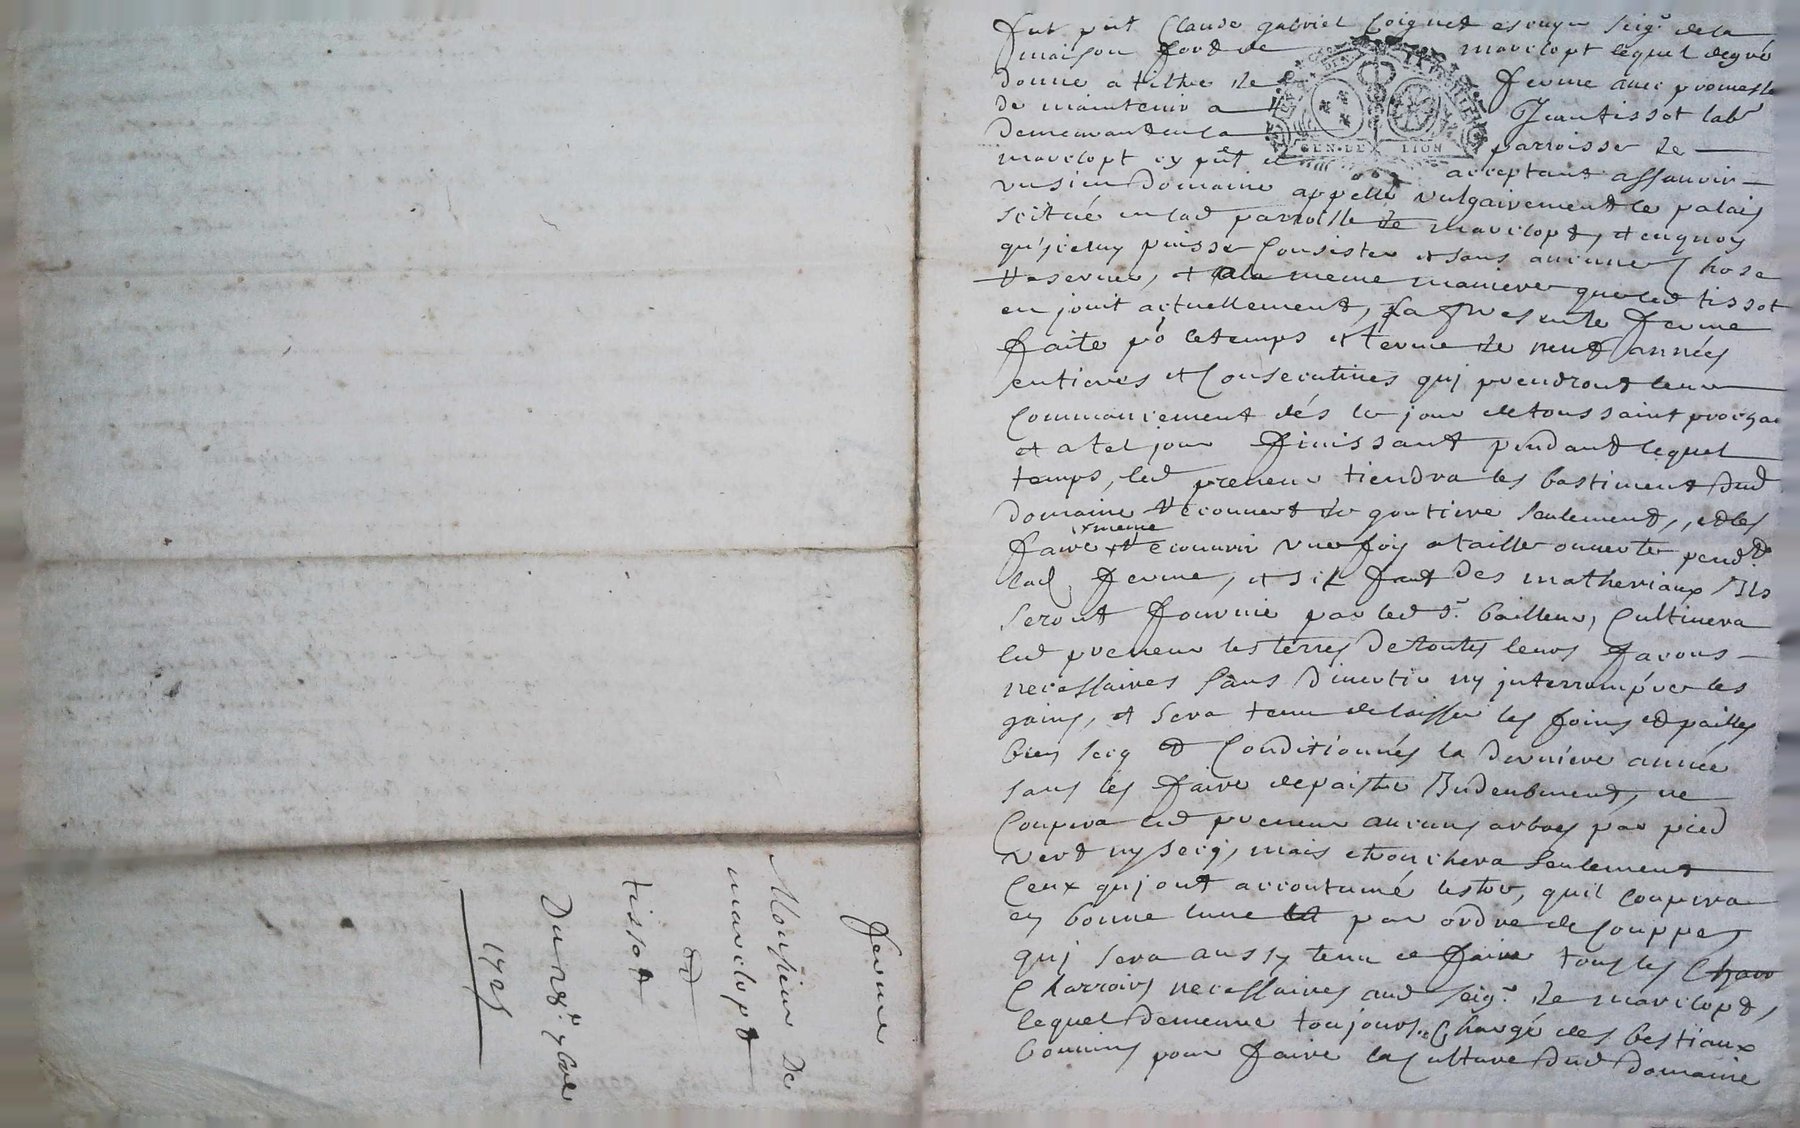 ferme
Monsieur De
marclopt
et
tissot
Du 28.e 7bre
1725
fut pnt Claude gabriel Coignet escuyer seigr de la
maison fort de marclopt lequel de gré
donne a tiltre de ferme avec promesse
de maintenir a Jean tissot labr
demeurant en la parroisse de
marclopt cy pnt et acceptant assavoir
un sien domaine appellé vulgairement le palais
scitué en lad parroisse de marclopt, et en quoy
qu'jceluy puisse Consister et sans aucune Chose
reserver, et a la meme maniere que led tissot
en jouit actuellement, la presente ferme
faite po le temps et terme de neuf années
entieres et Consecutives quj prendront leur
Commancement dés le jour de toussaint prochain
et a tel jour finissant pendant lequel
temps, led preneur tiendra les bastiment dud
domaine recouvert de goutiere seulement, et les
x meme
faire x recouvrir une foy a taille ouverte pendt
lad ferme, et s'il faut des matheriaux Ils
seront fournie par led sr bailleur, Cultivera
led preneur les terres de toutes leurs facons
necessaires sans divertir ny jnterrompre les
gains, et sera tenu de laisser les foins et pailles
bien secq et Conditionnés la derniere année
sans les faire depaistre Induement, ne
Coupera led preneur aucuns arbres par pied
vert ny secq, mais etronchera seulement
Ceux quj ont accoutumé lestre, quil coupera
en bonne lune et par ordre de Couppe,
quj sera aussy tenu de faire tous les Charr
Charroirs necessaires aud seigr de marclopt,
lequel demeure toujours Chargé des bestiaux
bouvins pour faire la Culture dud domaine
GEN. DE LION